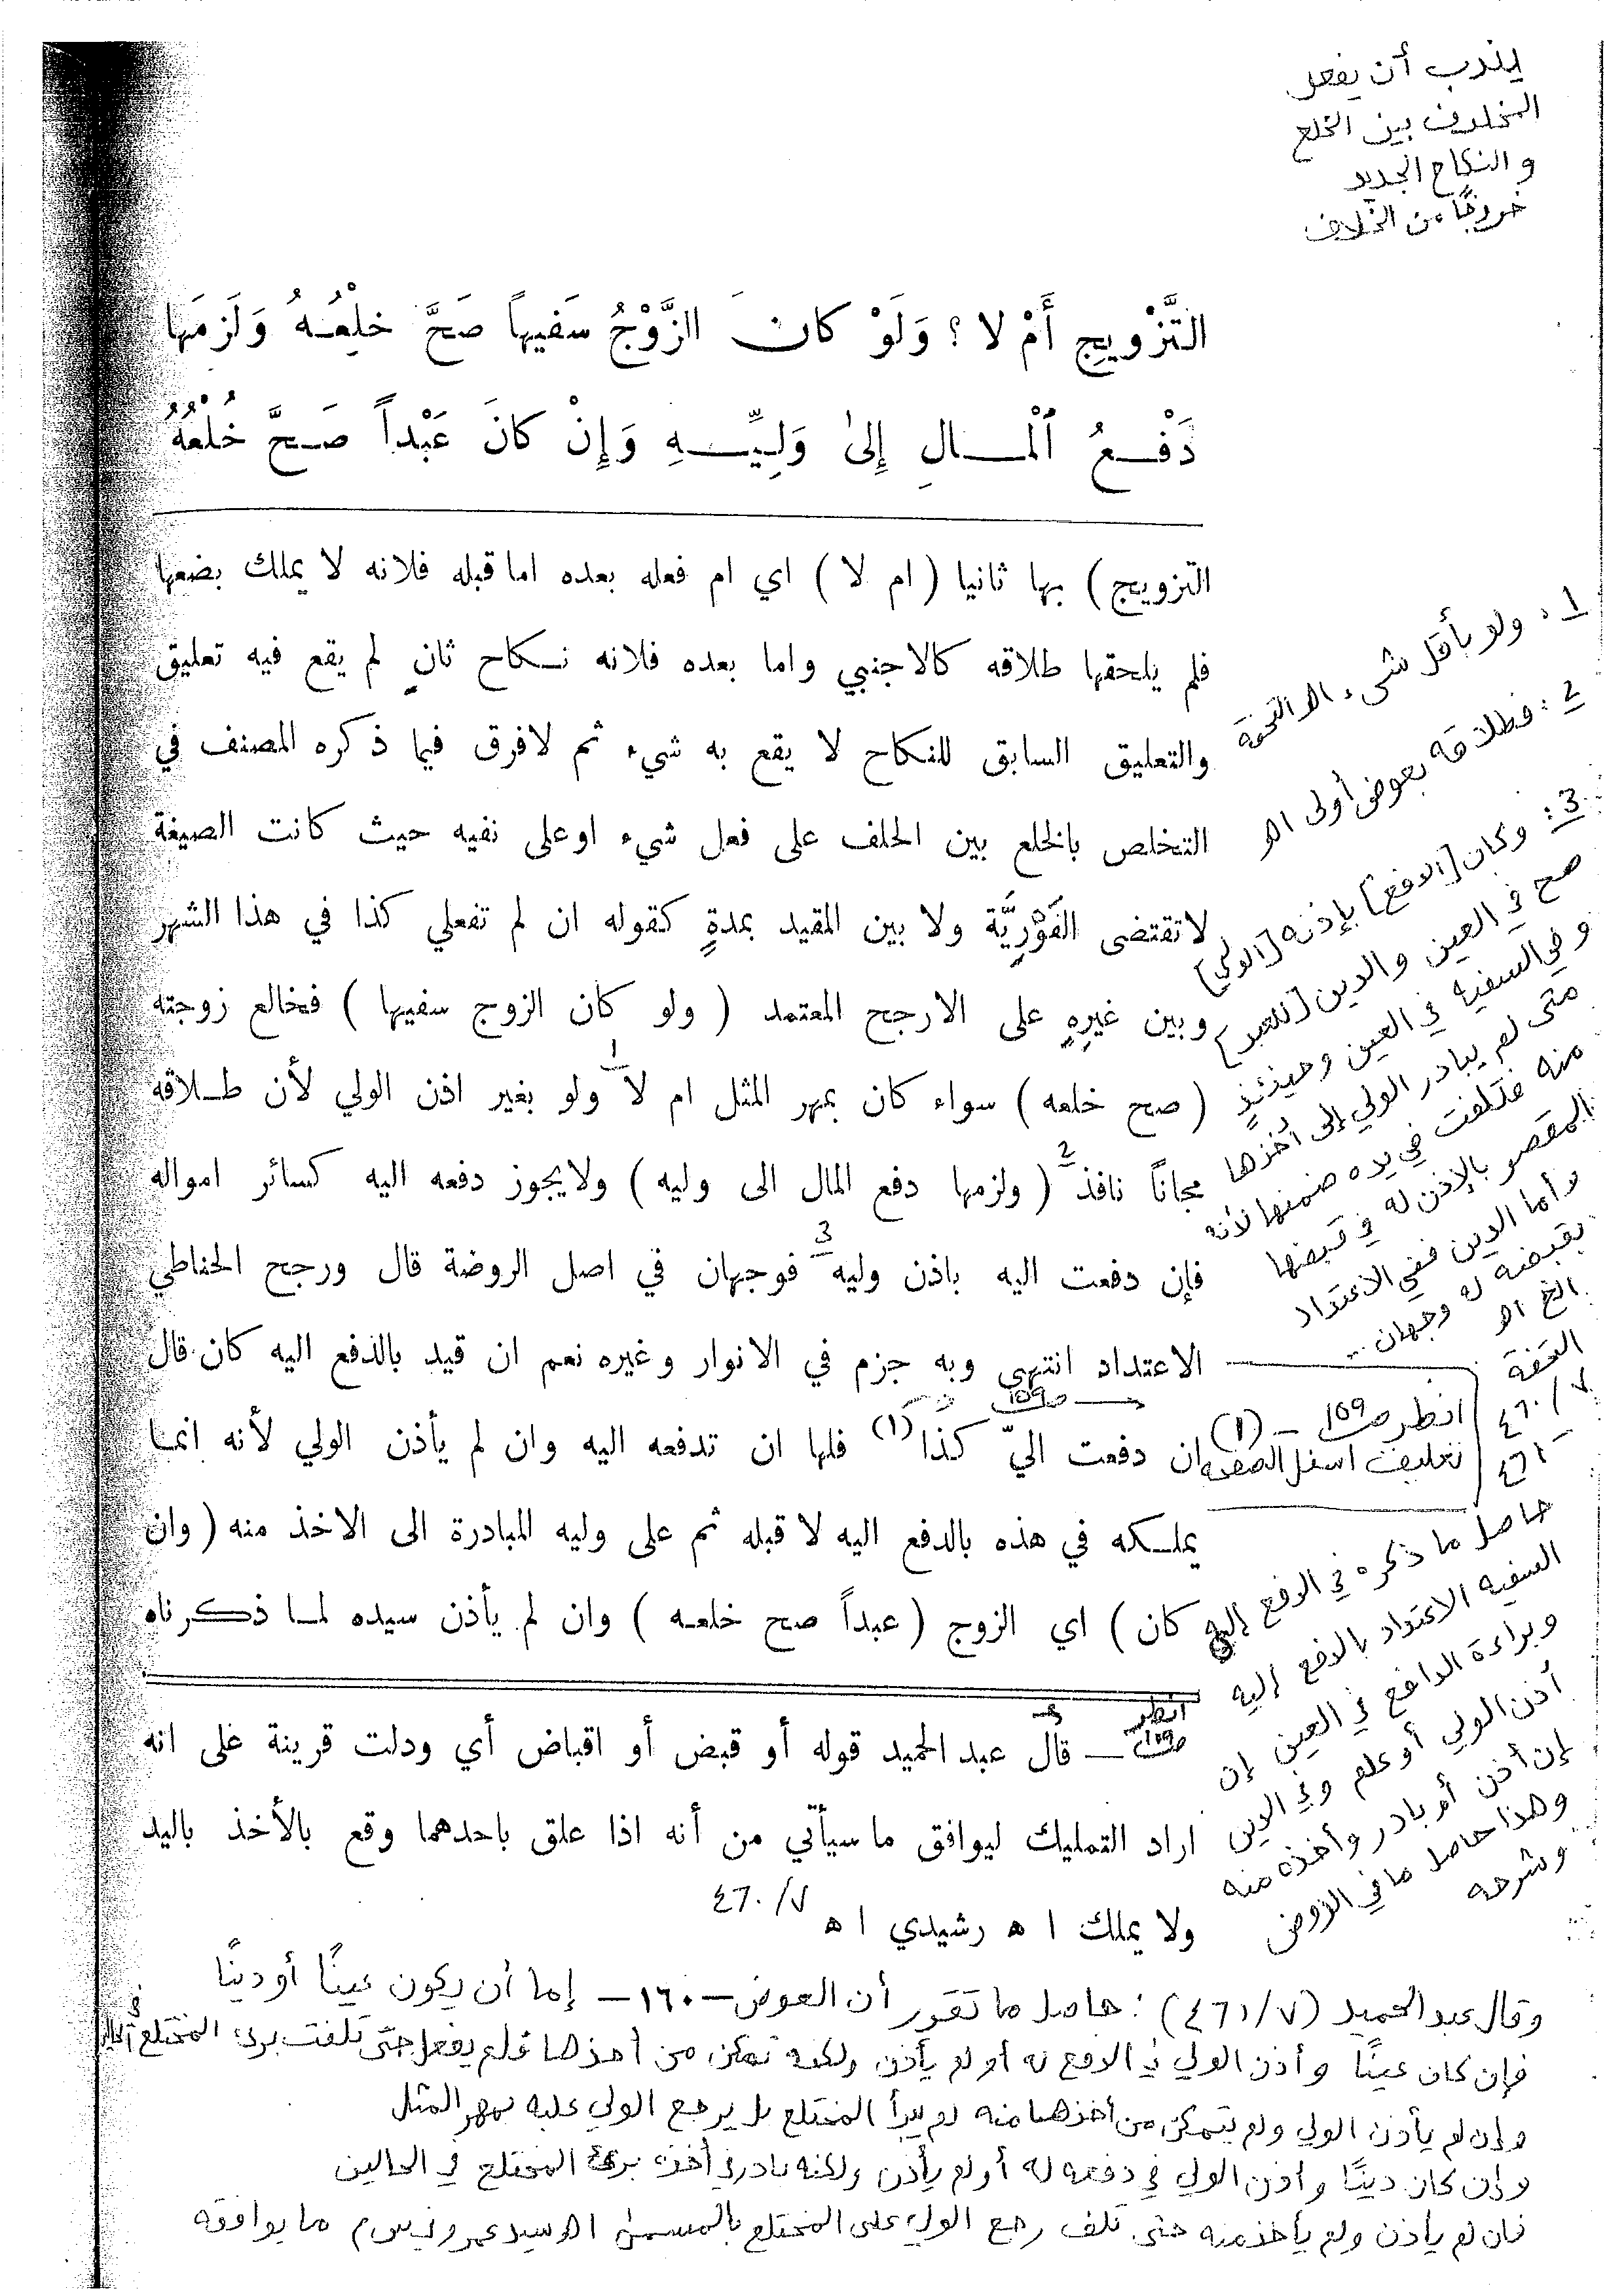 يندب أن يفعل
المحلوف بين الخلع
والنكاح الجديد
خروجًا من الخلاف
التَّزْوِيجِ أَمْ لا ؟ وَلَوْ كانَ الزَّوْجُ سَفيهاً صَحَّ خلْعُـهُ وَلَزِمَها
دَفْـعُ ٱلْمـالِ إِلىٰ وَلِيِّـهِ وَإِنْ كانَ عَبْداً صَـحَّ خُلْعُهُ
التزويج ) بها ثانيا ( ام لا ) اي ام فعله بعده اما قبله فلانه لا يملك بضعها
فلم يلحقها طلاقه كالاجنبي واما بعده فلانه نـكاح ثانٍ لم يقع فيه تعليق
والتعليق السابق للنكاح لا يقع به شيء ثم لافرق فيما ذكره المصنف في
التخلص بالخلع بين الحلف على فعل شيء اوعلى نفيه حيث كانت الصيغة
لاتقتضى الفَوْرِيَّة ولا بين المقيد بمدةٍ كقوله ان لم تفعلي كذا في هذا الشهر
وبين غيرِهِ على الارجح المعتمد ( ولو كان الزوج سفيها ) فخالع زوجته
( صح خلعه ) سواء كان بمهر المثل ام لا 1 ولو بغير اذن الولي لأن طـلاقه
مجاناً نافذ 2 ( ولزمها دفع المال الى وليه ) ولايجوز دفعه اليه كسائر امواله
فإن دفعت اليه باذن وليه 3 فوجهان في اصل الروضة قال ورجح الحناطي
الاعتداد انتهى وبه جزم في الانوار وغيره نعم ان قيد بالدفع اليه كان قال
ان دفعت اليّ كذا (١) فلها ان تدفعه اليه وان لم يأذن الولي لأنه انمـا
يملـكه في هذه بالدفع اليه لا قبله ثم على وليه المبادرة الى الاخذ منه ( وان
كان ) اي الزوج ( عبداً صح خلعـه ) وان لم يأذن سيده لمـا ذكرناه
1 : ولو بأقل شيء اهـ التحفة
2 : فطلاقه بعوض أولى اهـ
3 : وكان [الدفع] بإذنه [الولي]
صح في العين والدين [للعبد]
وفي السفيه في العين وحينئذٍ
متى لم يبادر الولي إلى أخذها
منه فتلفت في يده ضمنها لأنه
المقصر بالإذن له في قبضها
وأما الدين ففي الاعتداد
بقبضه له وجهان ..
الخ اهـ
التحفة
٤٦٠/٧
٤٦١
انظر ص 159 – (1)
تعليق اسفل الصفحة
حاصل ما ذكره في الدفع إلى
السفيه الاعتداد بالدفع إليه
وبراءة الدافع في العين إن
أذن الولي أو علم وفي الدين
إن أذن أو بادر وأخذه منه
وهذا حاصل ما في الروض
وشرحه
انظر
ص 159 – قال عبد الحميد قوله أو قبض أو اقباض أي ودلت قرينة على انه
اراد التمليك ليوافق ماسيأتي من أنه اذا علق باحدهما وقع بالأخذ باليد
ولا يملك ا ه رشيدي ا ه ٤٦٠/٧
وقال عبد الحميد (٤٦١/٧) : حاصل ما تقرر أن العوض – ١٦٠ – إما أن يكون عينًا أو دينًا
فإن كان عينًا وأذن الولي في الدفع له أو لم يأذن ولكنه تمكن من أخذها فلم يفعل حتى تلفت برئ المختلع في
وإن لم يأذن الولي ولم يتمكن من أخذها منه لم يبرأ المختلع بل يرجع الولي عليه بمهر المثل
وإن كان دينًا وأذن الولي في دفعه له أو لم يأذن ولكنه بادر في أخذه برئ المختلع في الحالين
فإن لم يأذن ولم يأخذ منه حتى تلف رجع الولي على المختلع بالمسمى اهـ سيد عمر وفي سم ما يوافقه